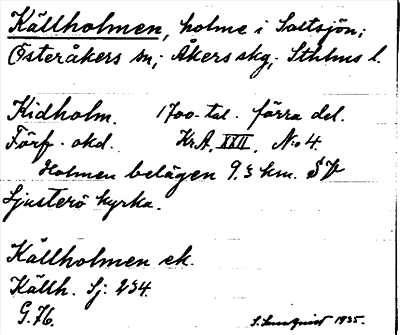 Källholmen, holme i Saltsjön;
Österåkers sn; Åkers skg; Sthlms l.
Kidholm. 1700-tal. förra del.
Förf. okd. KrA, XXII, N:o 4.
Holmen belägen 9.3 km. SV
Ljusterö kyrka.
Källholmen ek.
Källh. Sj: 234.
G. 76. 1935.